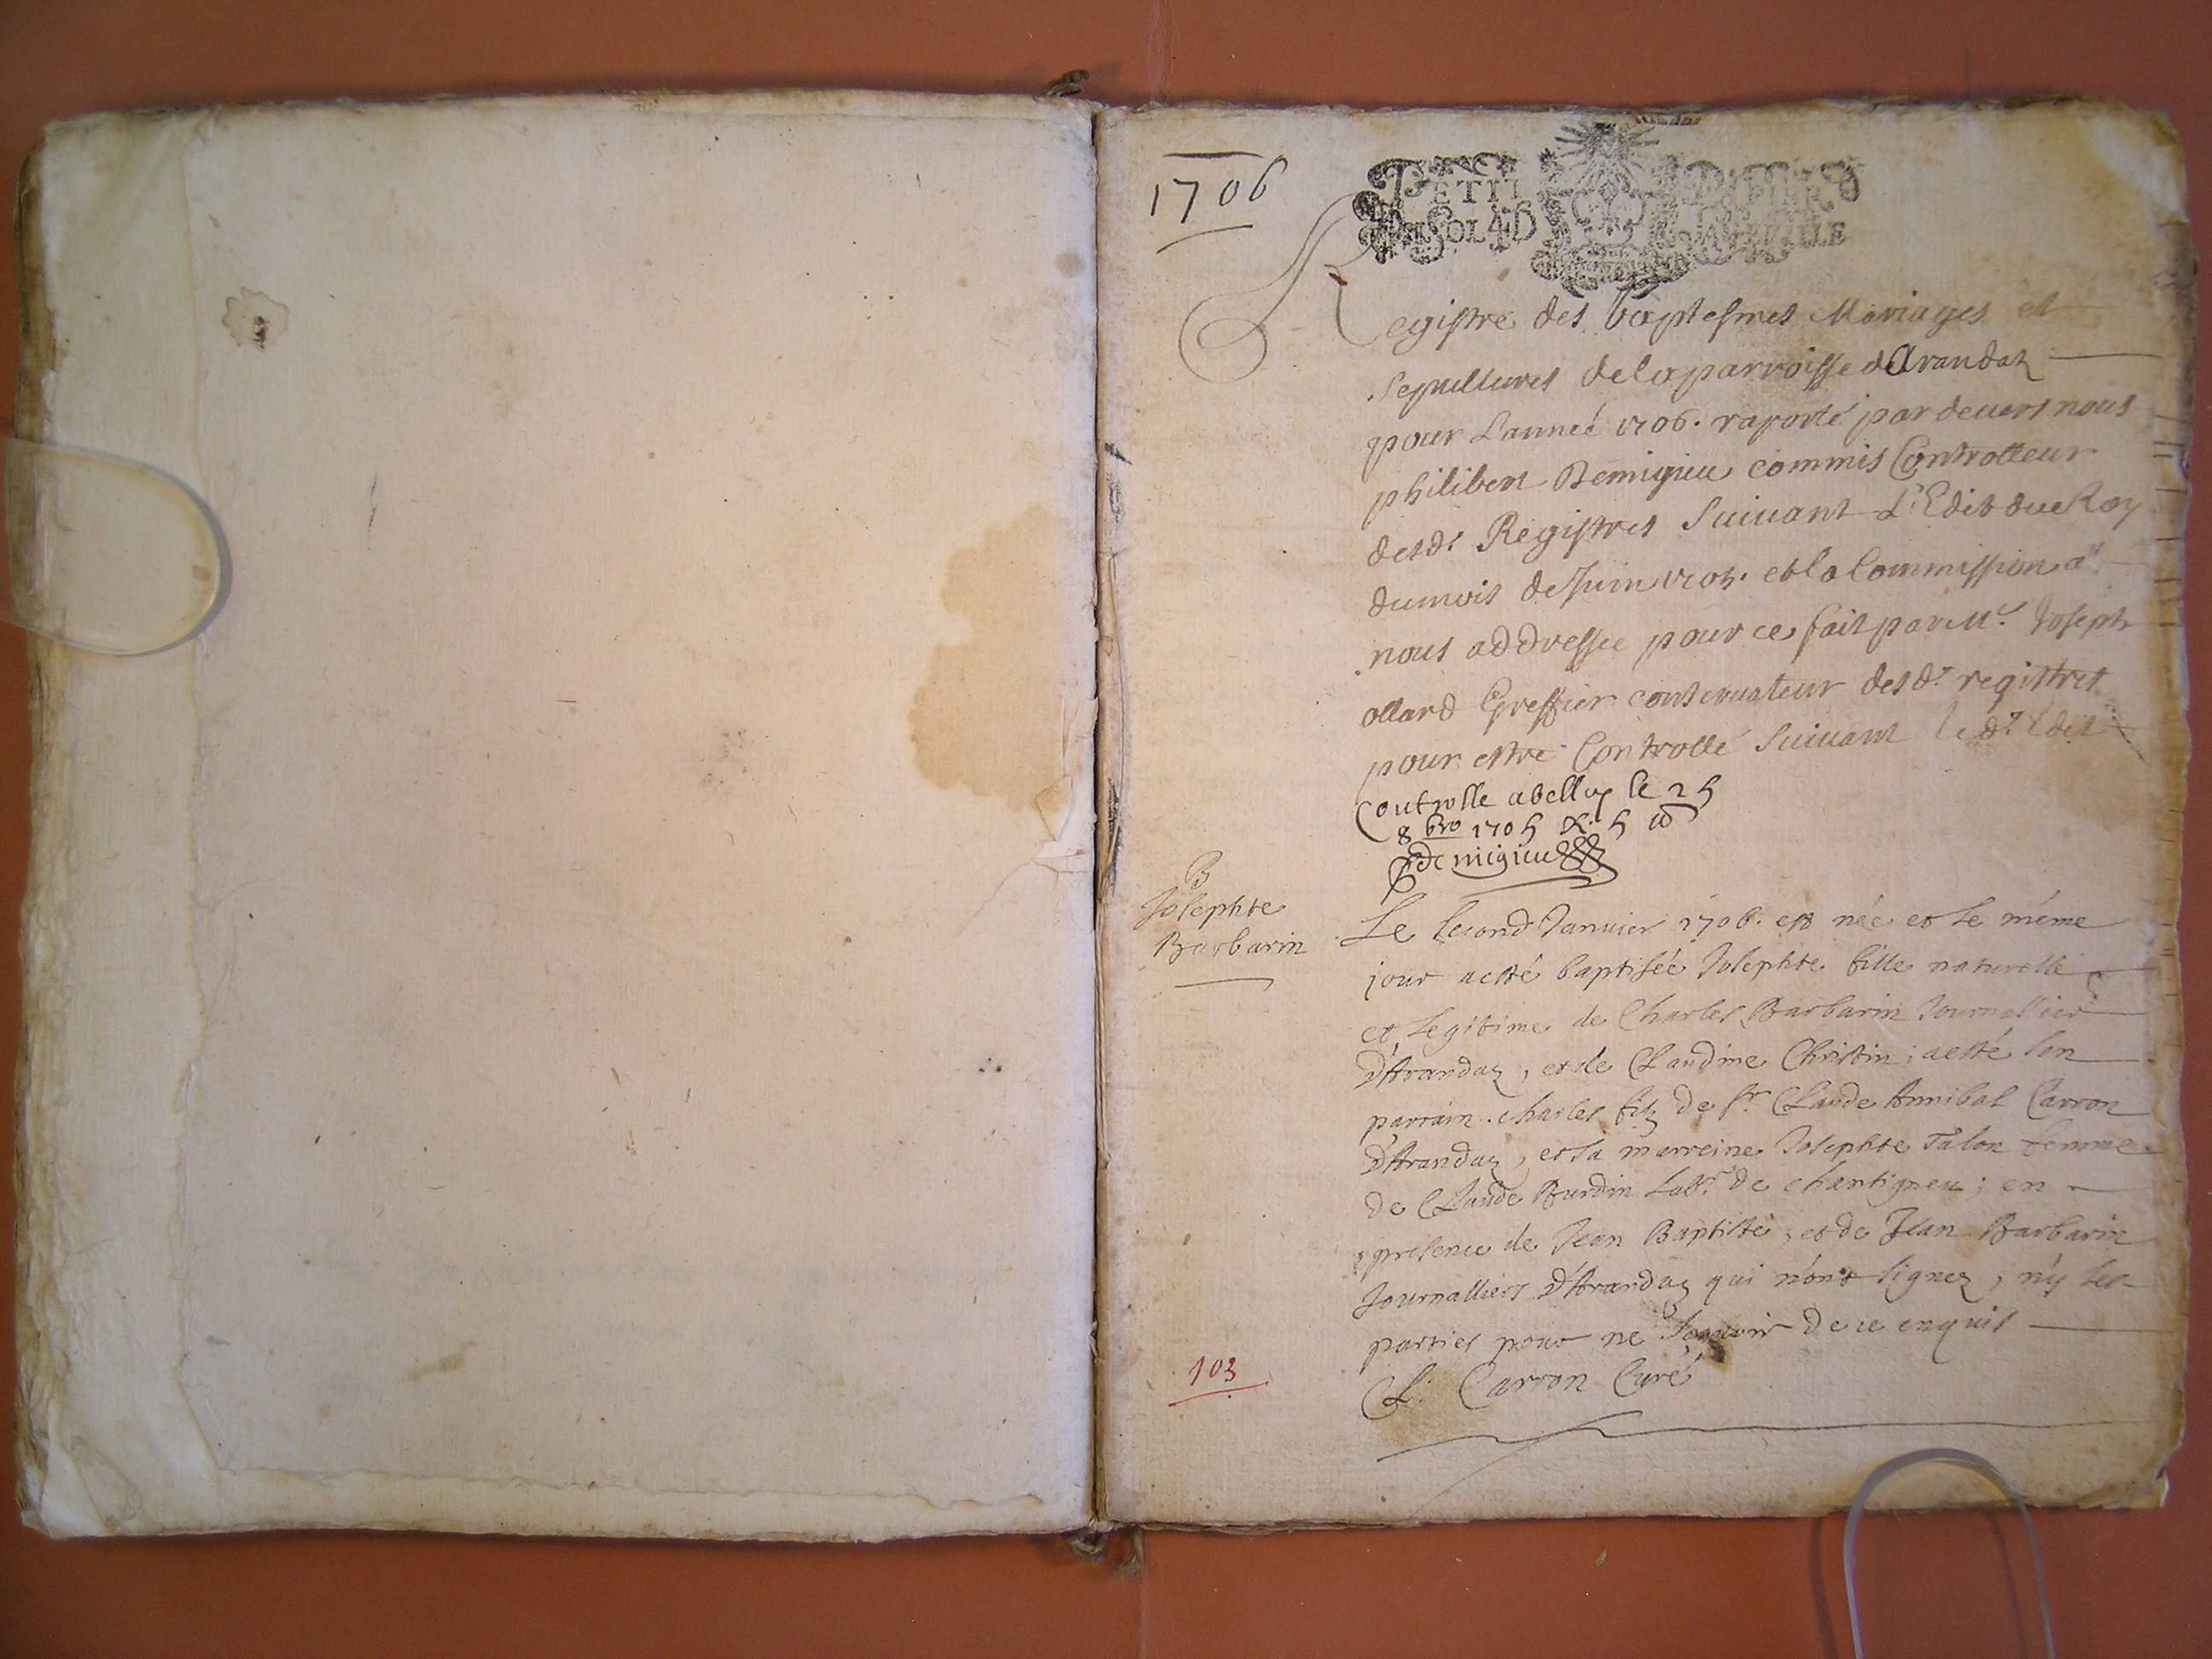 1706
PETIT PAPIER
SOLS LA FEUILLE
Registre des baptesmes Mariages et
Sepultures de la parroisse d'Arandaz
pour L'année 1706. raporté par devers nous
philibert Demigieu commis Controlleur
desd. Registres Suivant L'Edit du Roy
du mois de Juin 1705. et la Commission a
nous addressée pour ce fait par Mr. Joseph
ollard Greffier conservateur desd. registres
pour estre Controllé Suivant led. Edit
Controlle a belley le 25
8bre 1705 R. 5 s
Demigieu
B
Josephte
Barbarin
Le second Janvier 1706. est née et le même
jour a esté baptisée Josephte fille naturelle
et legitime de Charles Barbarin Journallier
D'Arandaz, et de Claudine Christin; a esté son
parrain charles filz de sr. Claude Annibal Carron
D'Arandaz, et sa marreine Josephte Talon femme
de Claude Burdin labr. de chantigneu; en
presence de Jean Baptiste, et de Jean Barbarin
Journalliers D'Arandaz qui n'ont signez, n'y les
parties pour ne sçavoir de ce enquis
103
Cl. Carron Curé